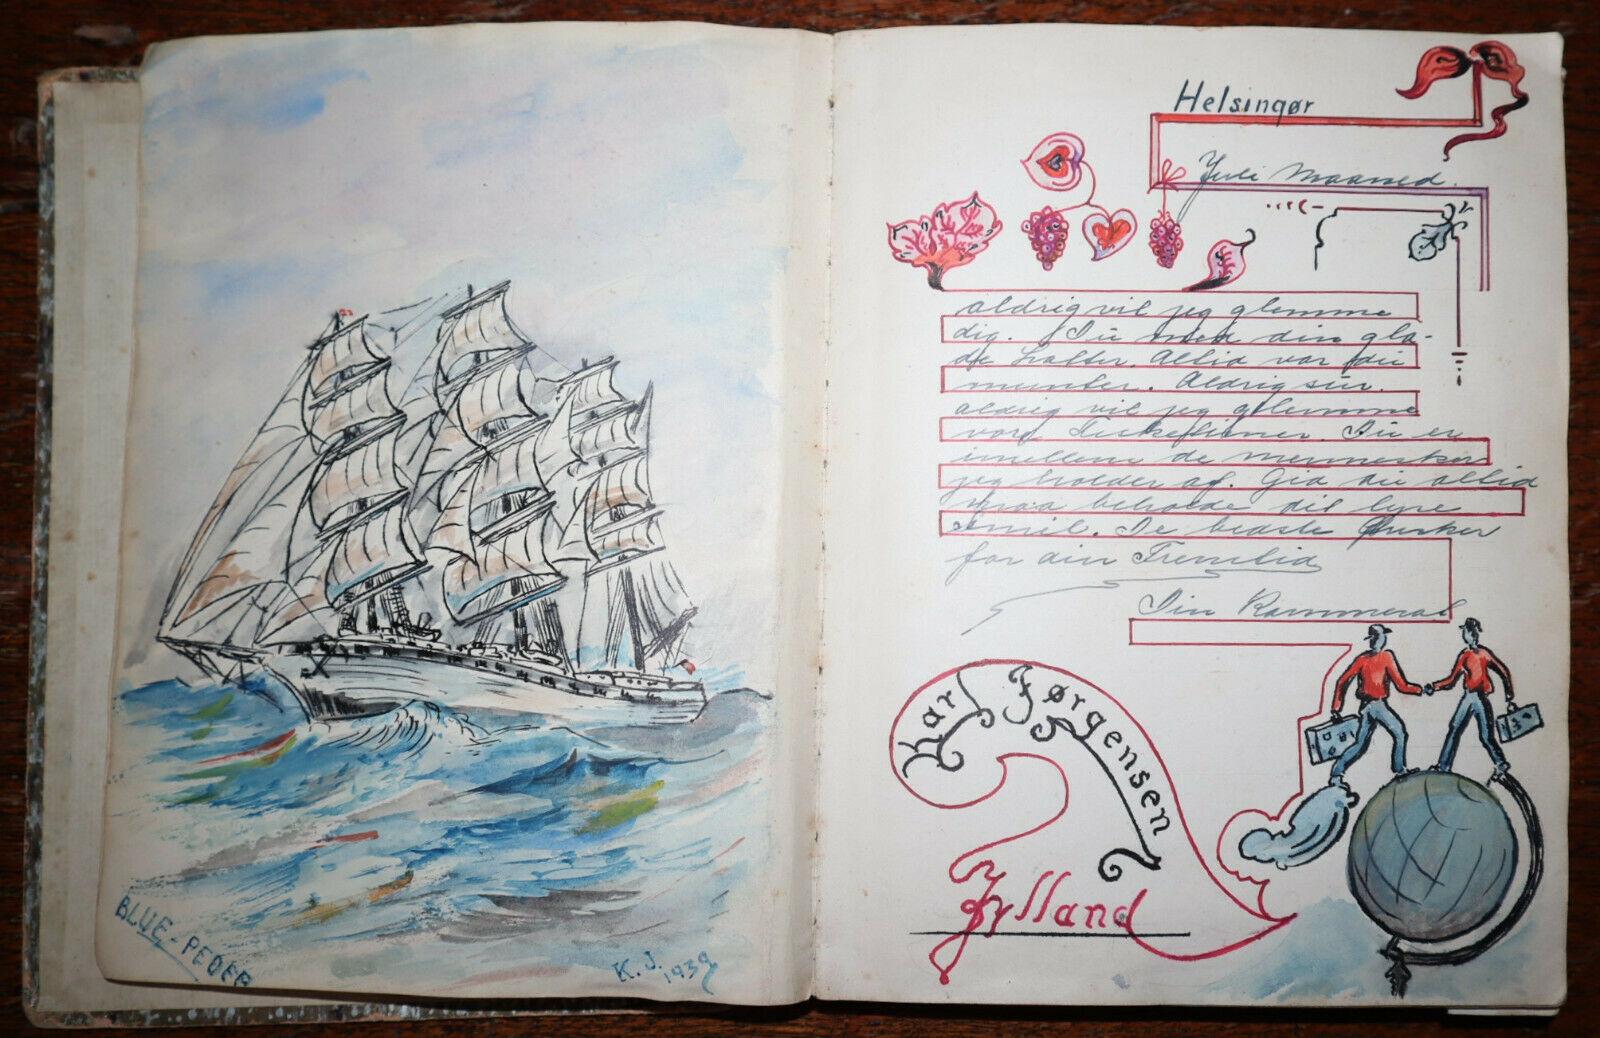 BLUE-PEDER
K. J. 1939
Helsingør
Juli Maaned.
aldrig vil jeg glemme
dig. Du med din gla-
de Latter. Altid var du
munter. Aldrig sur.
aldrig vil jeg glemme
vore Du er
imellem de mennesker
jeg holder af. Gid du altid
maa beholde dit lyse
smil. De bedste Ønsker
for din Fremtid
Din Kammerat
Karl Jørgensen
Jylland